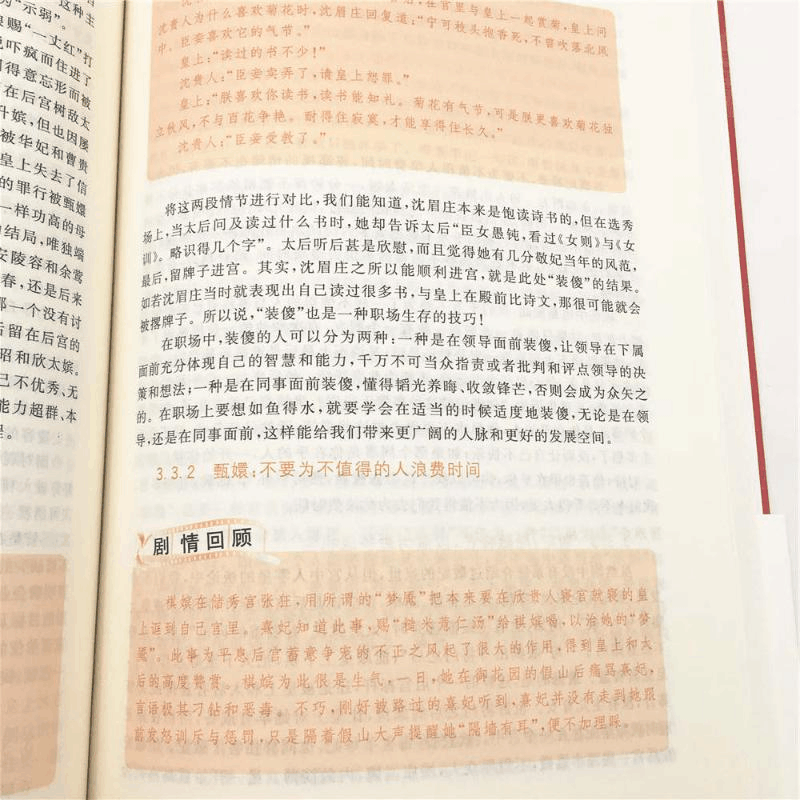 种主
"示弱"。
赐"一丈红"打
吓疯而住进了
得意忘形而被
在后宫树敌太
升嫔，但也因屡
被华妃和曹贵
皇上失去了信
的罪行被甄嬛
一样功高的母
结局，唯独端
安陵容和余莺
春，还是后来
那一个没有讨
后留在后宫的
昭和欣太嫔。
己不优秀、无
能力超群、本
在宫里与皇上一起赏菊，皇上问
沈贵人为什么喜欢菊花时，沈眉庄回复道："宁可枝头抱香死，不曾吹落北风
中。臣妾喜欢它的气节。"
皇上："读过的书不少！"
沈贵人："臣妾卖弄了，请皇上恕罪。"
皇上："朕喜欢你读书，读书能知礼。菊花有气节，可是朕更喜欢菊花独
立秋风，不与百花争艳。耐得住寂寞，才能享得住长久。"
沈贵人："臣妾受教了。"
将这两段情节进行对比，我们能知道，沈眉庄本来是饱读诗书的，但在选秀
场上，当太后问及读过什么书时，她却告诉太后"臣女愚钝，看过《女则》与《女
训》。略识得几个字"。太后听后甚是欣慰，而且觉得她有几分敬妃当年的风范，
最后，留牌子进宫。其实，沈眉庄之所以能顺利进宫，就是此处"装傻"的结果。
如若沈眉庄当时就表现出自己读过很多书，与皇上在殿前比诗文，那很可能就会
被撂牌子。所以说，"装傻"也是一种职场生存的技巧！
在职场中，装傻的人可以分为两种：一种是在领导面前装傻，让领导在下属
面前充分体现自己的智慧和能力，千万不可当众指责或者批判和评点领导的决
策和想法；一种是在同事面前装傻，懂得韬光养晦、收敛锋芒，否则会成为众矢之
的。在职场上要想如鱼得水，就要学会在适当的时候适度地装傻，无论是在领
导，还是在同事面前，这样能给我们带来更广阔的人脉和更好的发展空间。
3.3.2 甄嬛：不要为不值得的人浪费时间
剧情回顾
棋嫔在储秀宫张狂，用所谓的"梦魇"把本来要在欣贵人寝宫就寝的皇
上诓到自己宫里。熹妃知道此事，赐"糙米薏仁汤"给祺嫔喝，以治她的"梦
魇"。此事为平息后宫蓄意争宠的不正之风起了很大的作用，得到皇上和太
后的高度赞赏。棋嫔为此很是生气，一日，她在御花园的假山后痛骂熹妃，
言语极其刁钻和恶毒。不巧，刚好被路过的熹妃听到，熹妃并没有走到她跟
前发怒训斥与惩罚，只是隔着假山大声提醒她"隔墙有耳"，便不加理睬。